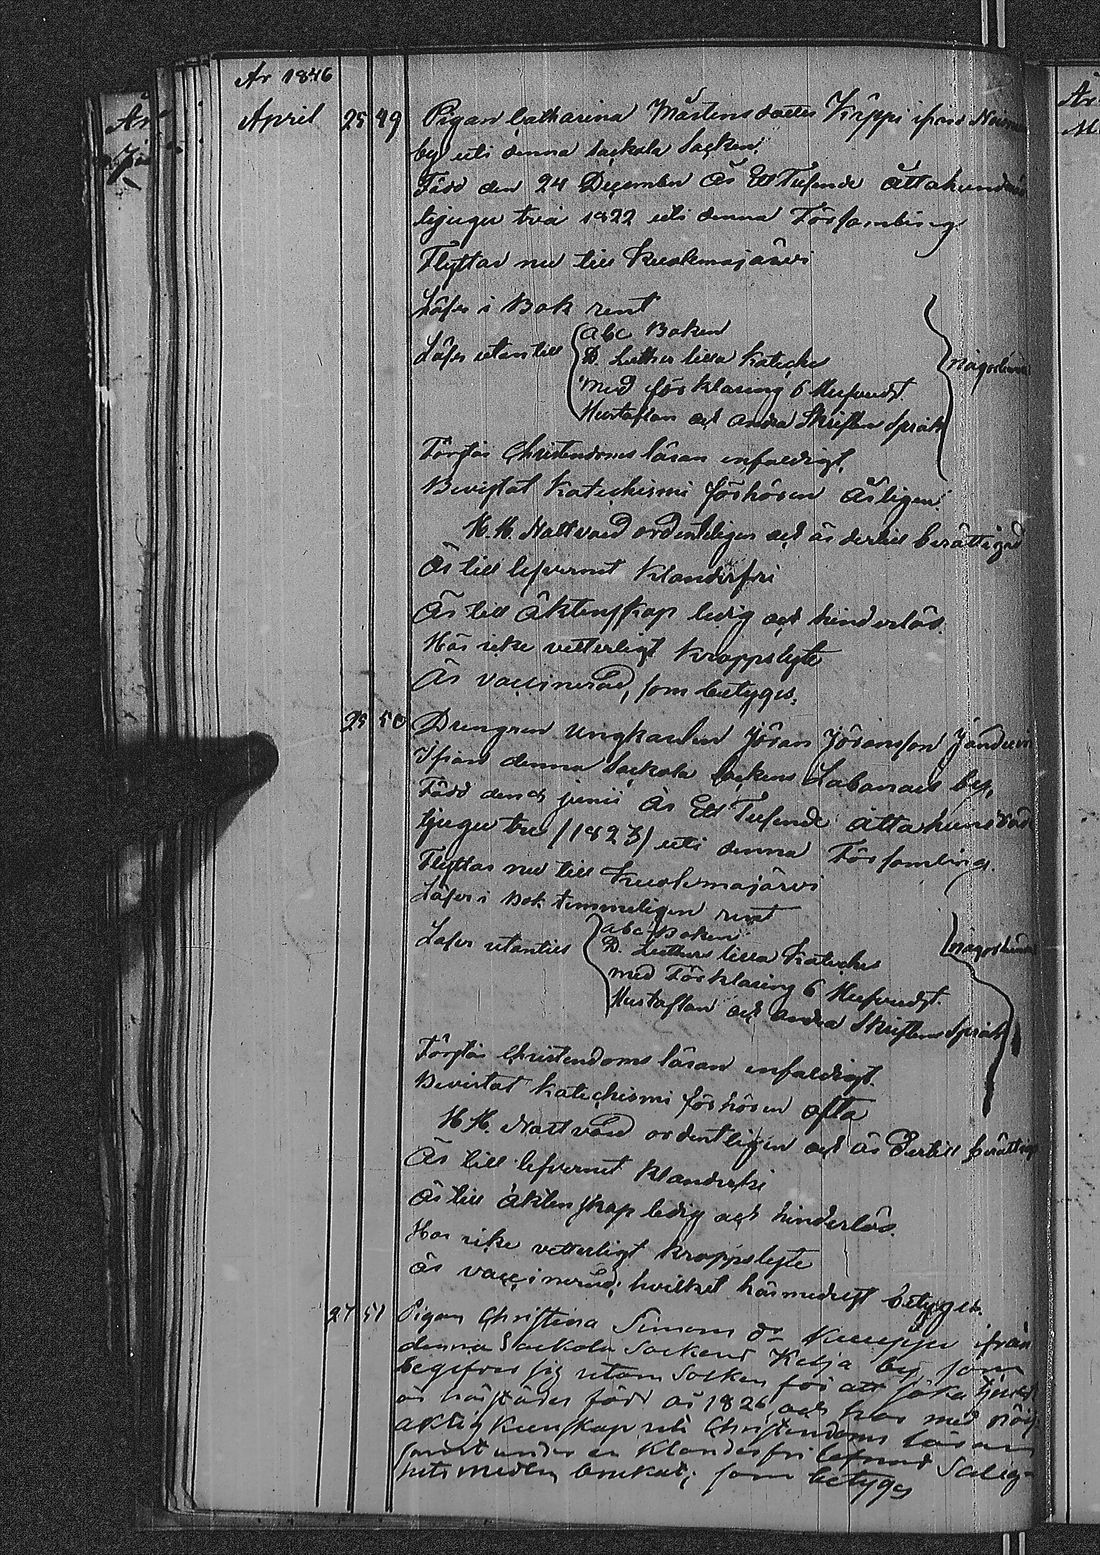 År 1846
April 25 49 Pigan Catharina Mårtensdotter Käppi ifrån
by uti denna Sackola Sacken.
Född den 24 December År Ett Tusende åttahundra
tjugu två 1822 uti denna Församling
Flyttar nu till Kuolemajärvi
Läser i Bok rent
Läser utantill abc Boken
D. Luthers lilla Kateches
med förklaring 6 Hufvudst.
Hustaflan och andra Skriftens Språk
någorlunda
Förstår Christendoms läran enfaldigt.
Bevistat Katechismi förhören Årligen.
H.H. Nattvard ordentligen och är dertill berättigad
Är till lefvernet klanderfri
Är till äktenskap ledig och hinderlös.
Har icke vetterligt kroppslyte
Är vaccinerad, som betyges.
25 50 Drengen ungkarlen Jöran Jöransson
Ifrån denna Sackola Sackens Labanais by,
Född den 9 junii År Ett Tusende åtta hundrad
tjugu tre (1823) uti denna Församling.
Flyttar nu till Kuolemajärvi
Läser i Bok temmeligen rent
Läser utantill abc Boken
D. Luthers lilla Kateches
med Förklaring 6 Hufvudst.
Hustaflan och andra Skriftens Språk
någorlunda
Förstår Christendoms läran enfaldigt.
Bevistat Katechismi förhören ofta
H.H. Nattvard ordentligen och är dertill berättigad
Är till lefvernet klanderfri
Är till äktenskap ledig och hinderlös.
Har icke vetterligt kroppslyte
Är vaccinerad; hvilket härmedelst betyges.
27 51 Pigan Christina Simons dr ifrån
denna Sackola Sockens Kelja by som
begifver sig utom Socken för att söka tjenst
är härstädes född år 1826 och har med
aktig kunskap uti Christendoms läran
samt under en klanderfri lefnad Salig-
hets medlen brukat; som betyges